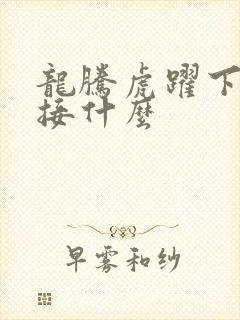 龍騰虎躍下
接什麼
早雾和纱